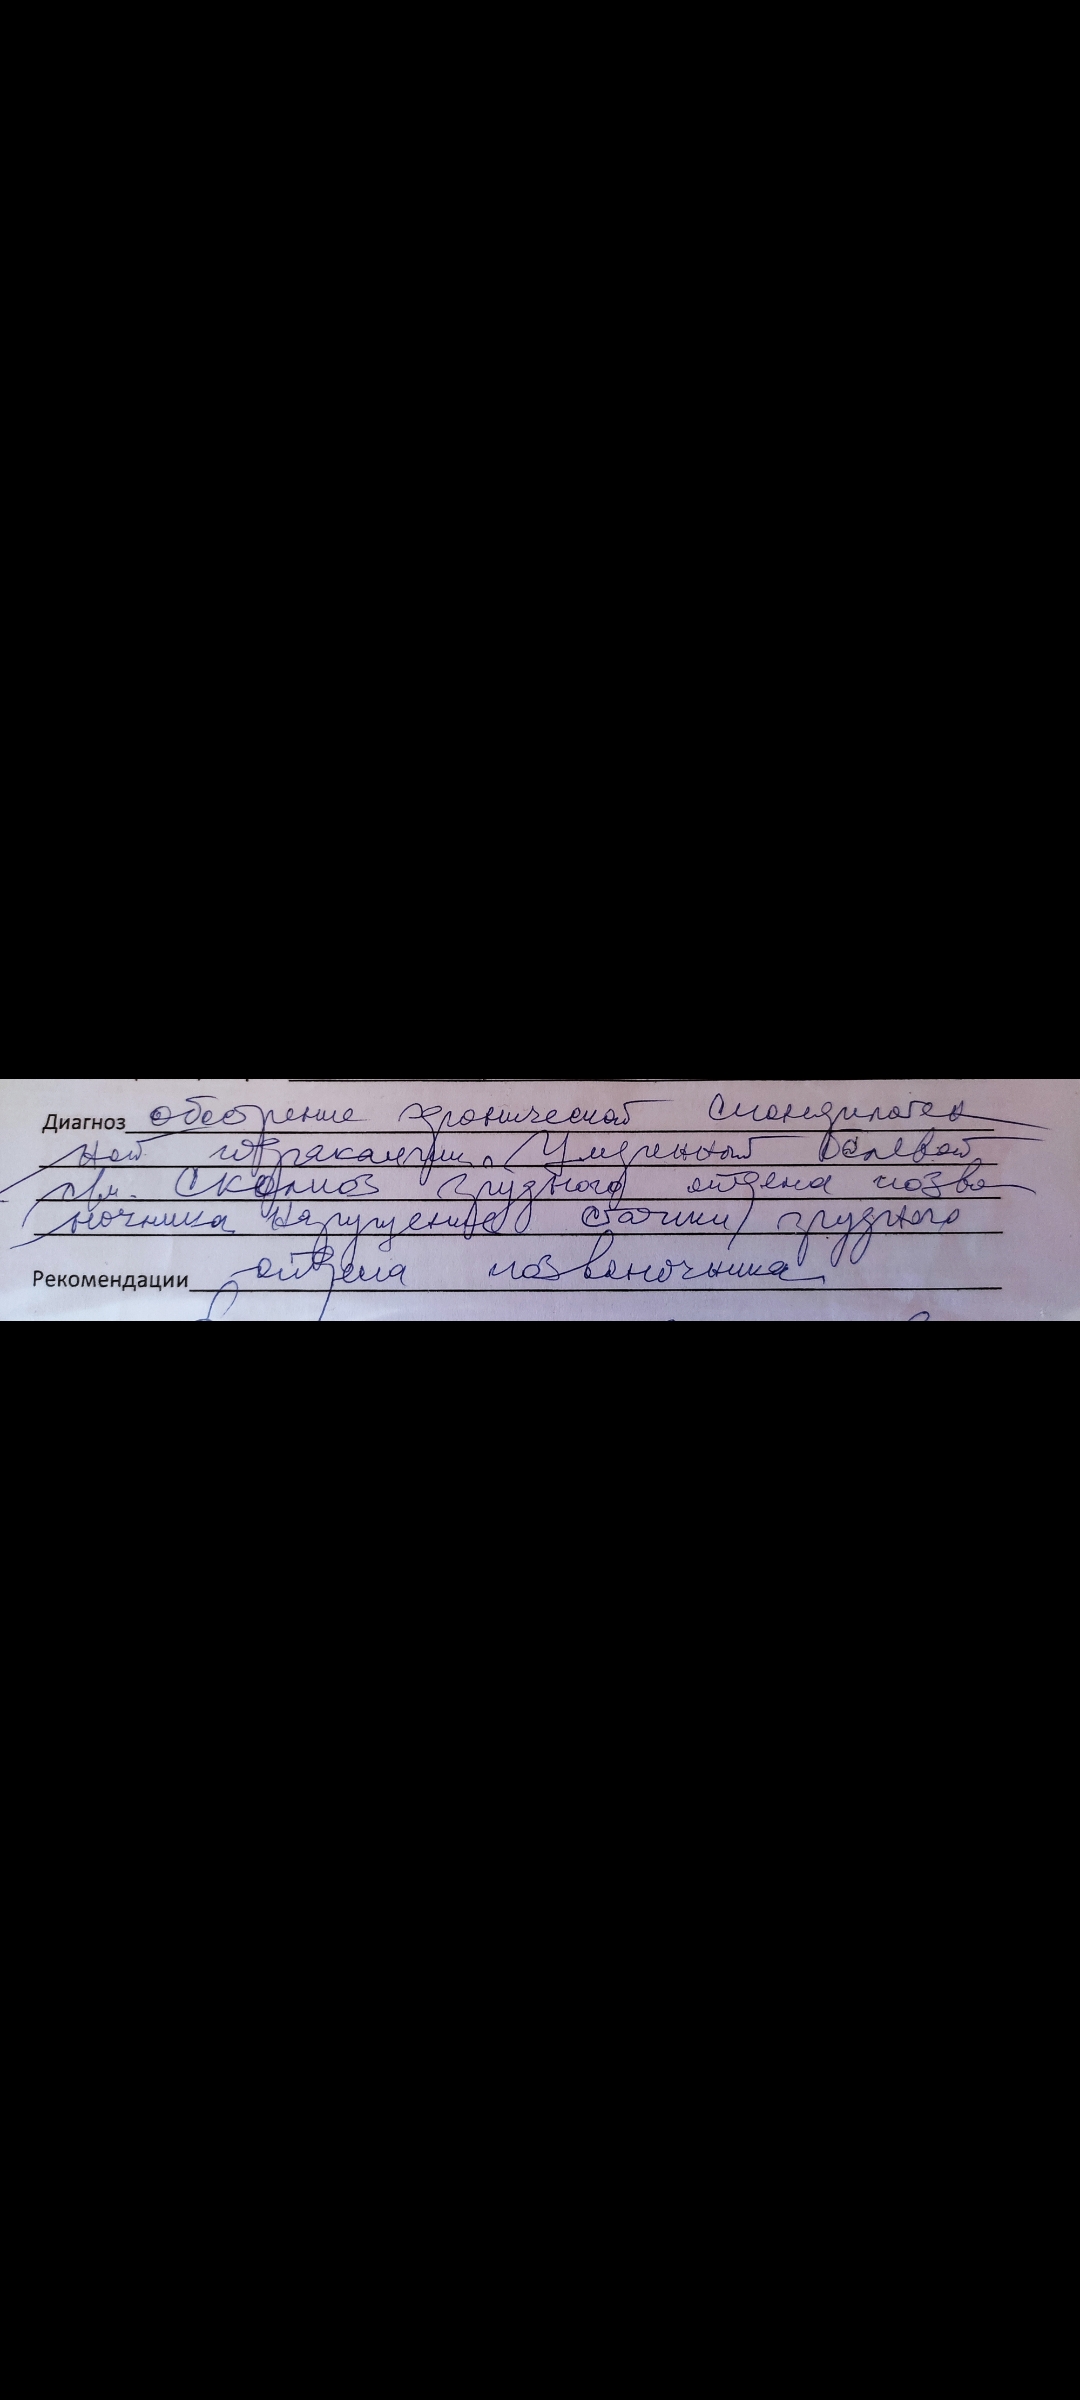 Диагноз обострение хронической спондилоген
ной торакалгии. Умеренный болевой
с-м. Сколиоз грудного отдела позво
ночника Нарушение статики грудного
Рекомендации отдела позвоночника